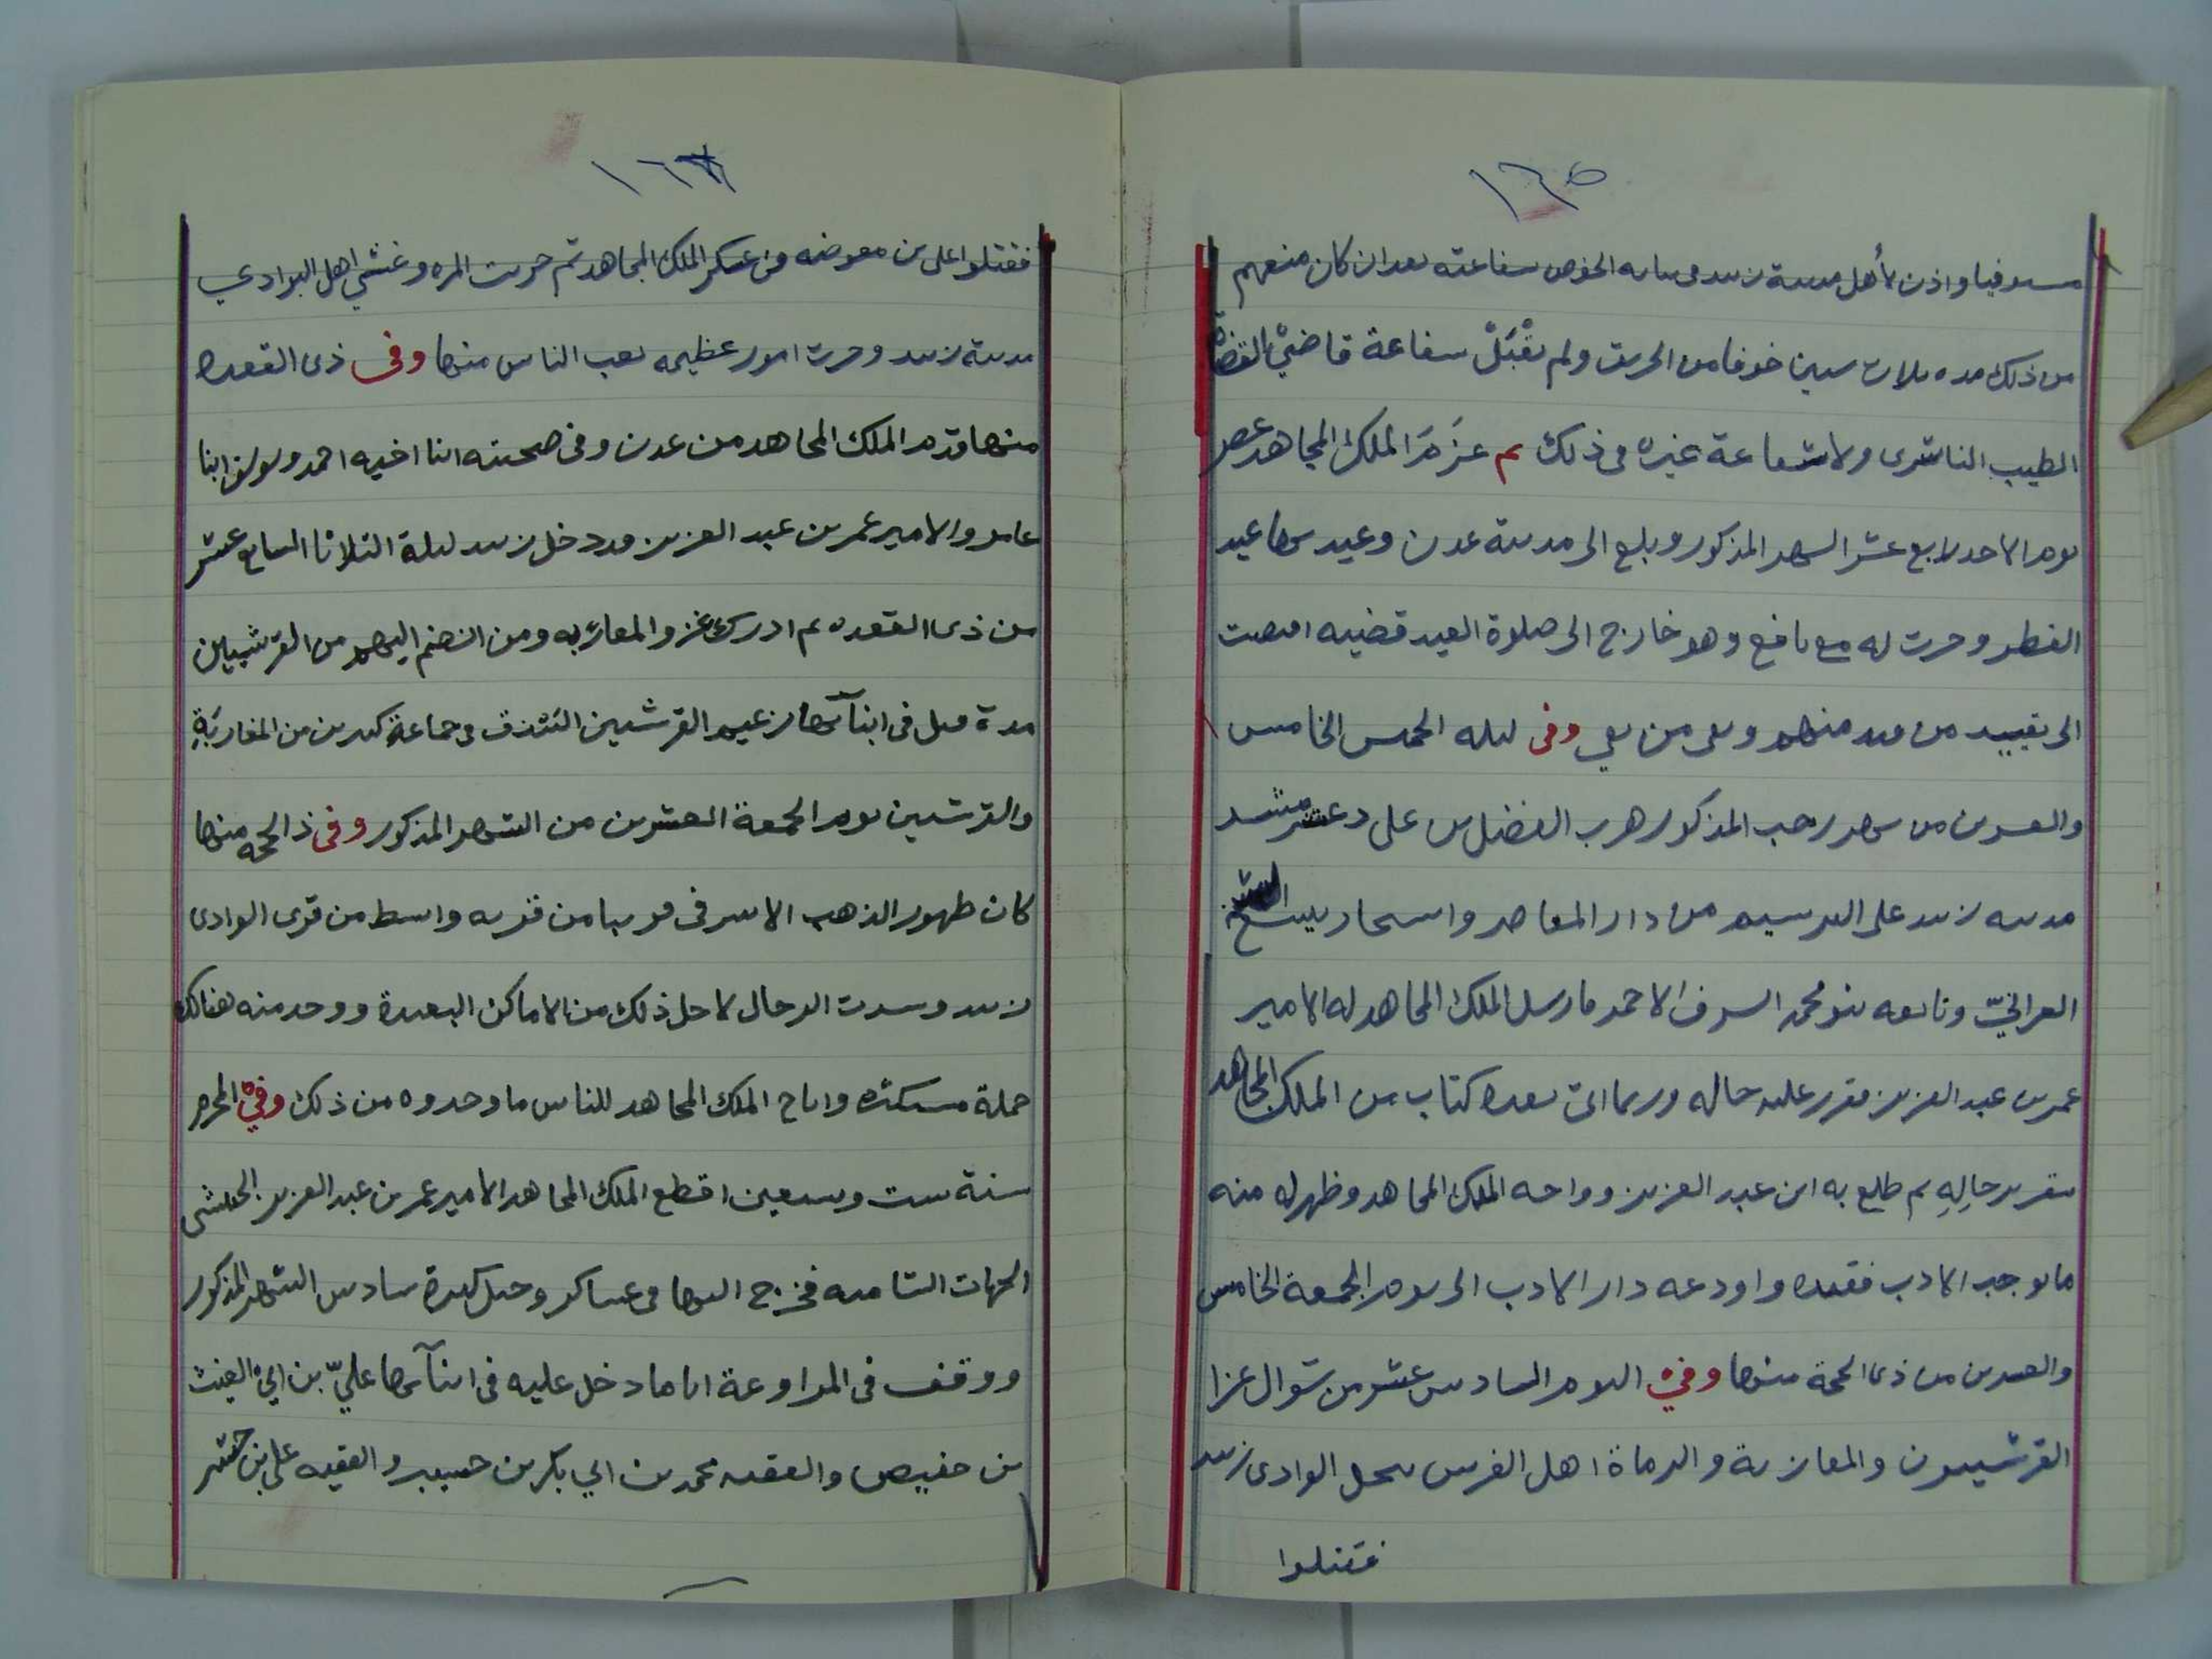 ١٦٥
واذن لأهل مدينة زبيد فى بنايه الخوص بشفاعته بعد ان كان منعهم
من ذلك مده ثلاث سنين خوفا من الحريق ولم يقْبَلْ شفاعة قاضيْ القضاة
الطيب الناشرى ولا شفاعة غيره فى ذلك ثم عزَمَ الملك المجاهد عصر
يوم الاحد رابع عشر الشهر المذكور وبلغ الى مدينة عدن وعيد بها عيد
الفطر وجرت له مع يافع وهو خارج الى صلوة العيد قضيه افضت
الى تقييد من قيد منهم ونفى من نفي وفى ليله الخميس الخامس
والعشرين من شهر رجب المذكور هرب الفضل بن على دعشر مشد
مدينه زبيد على الترسيم من دار المعاصر واستجار ببيت الشيخ
الغزالي وتابعه بنو محمد الشرف الاحمر فارسل الملك المجاهد له الامير
عمر بن عبد العزيز فقرر عليه حاله وربما اتى بعده كتاب من الملك المجاهد
بتقرير حالِهِ ثم طلع به ابن عبد العزيز وواجه الملك المجاهد وظهر له منه
ما يوجب الادب فقيده واودعه دار الادب الى يوم الجمعة الخامس
والعشرين من ذى الحجة منها وفي اليوم السادس عشر من شوال غزا
القرشيون والمعازبة والرماة اهل الفرس بنخل الوادى زبيد
فقتلوا
١٦٦
فقتلوا على بن معوضه من عسكر الملك المجاهد ثم جرت المره وغشي اهل البوادي
مدينة زبيد وجرت امور عظيمه تعب الناس منها وفى ذى القعده
منها قدم الملك المجاهد من عدن وفى صحبته ابنا اخيه احمد ويوسف ابنا
عامر والامير عمر بن عبد العزيز فدخل زبيد ليلة الثلاثا السابع عشر
من ذى القعده ثم ادرك غزو المعازبه ومن انضم اليهم من القرشيين
مدة قتل فى اثنآئها زعيم القرشيين الشذف فى جماعة كثيرين من المعازبَةِ
والقرشيين يوم الجمعة العشرين من الشهر المذكور وفى ذ الحجه منها
كان ظهور الذهب الاشرفى قريبا من قريه واسط من قرى الوادى
زبيد وسدت الرحال لاجل ذلك من الاماكن البعيدة ووجد منه هنالك
جملة مستكثره واباح الملك المجاهد للناس ما وجدوه من ذلك وفيْ المحرم
سنة ست وسبعين اقطع الملك المجاهد الامير عمر بن عبد العزيز الحبشى
الجهات الشاميه فخرج اليها فى عساكر وخيل كثيرة سادس الشهر المذكور
ووقف فى المراوعة اياما دخل عليه فى اثنآئها عليّ بن ابيْ الغيث
بن حفيص والفقيه محمد بن ابي بكر بن حسيبر والفقيه على بن حشيبر